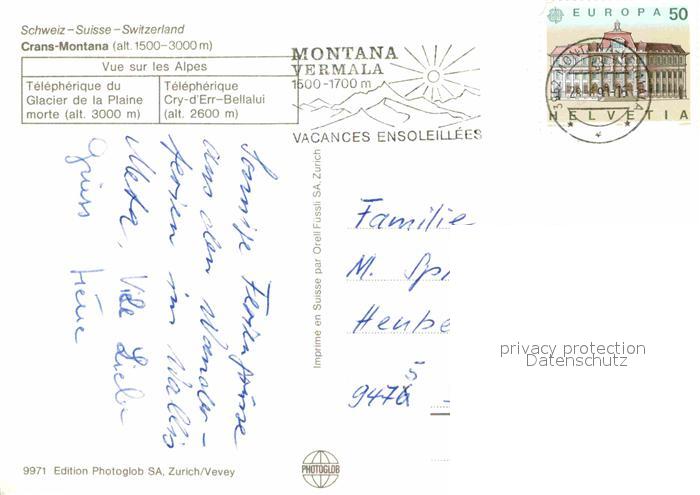 Schweiz – Suisse – Switzerland
Crans-Montana (alt. 1500–3000 m)
Vue sur les Alpes
Téléphérique du
Glacier de la Plaine
morte (alt. 3000 m)
Téléphérique
Cry-d'Err-Bellalui
(alt. 2600 m)
MONTANA
VERMALA
1500-1700 m
VACANCES ENSOLEILLÉES
EUROPA 50
HELVETIA
Sonnige Feriengrüsse
aus den Wander–
ferien im Wallis
Viele Liebe
Grüss
Imprimé en Suisse par Orell Füssli SA, Zurich
Familie
M. Sp
Heube
947
privacy protection
Datenschutz
9971 Edition Photoglob SA, Zurich/Vevey
PHOTOGLOB